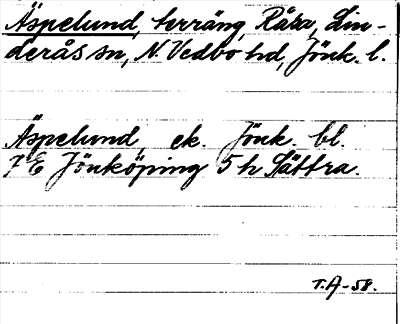 Äspelund, terräng, Råra, Lin-
derås sn, N. Vedbo hd, Jönk. l.
Äspelund, ek. Jönk. bl.
7E Jönköping 5 h Sättra.
T.A-58.